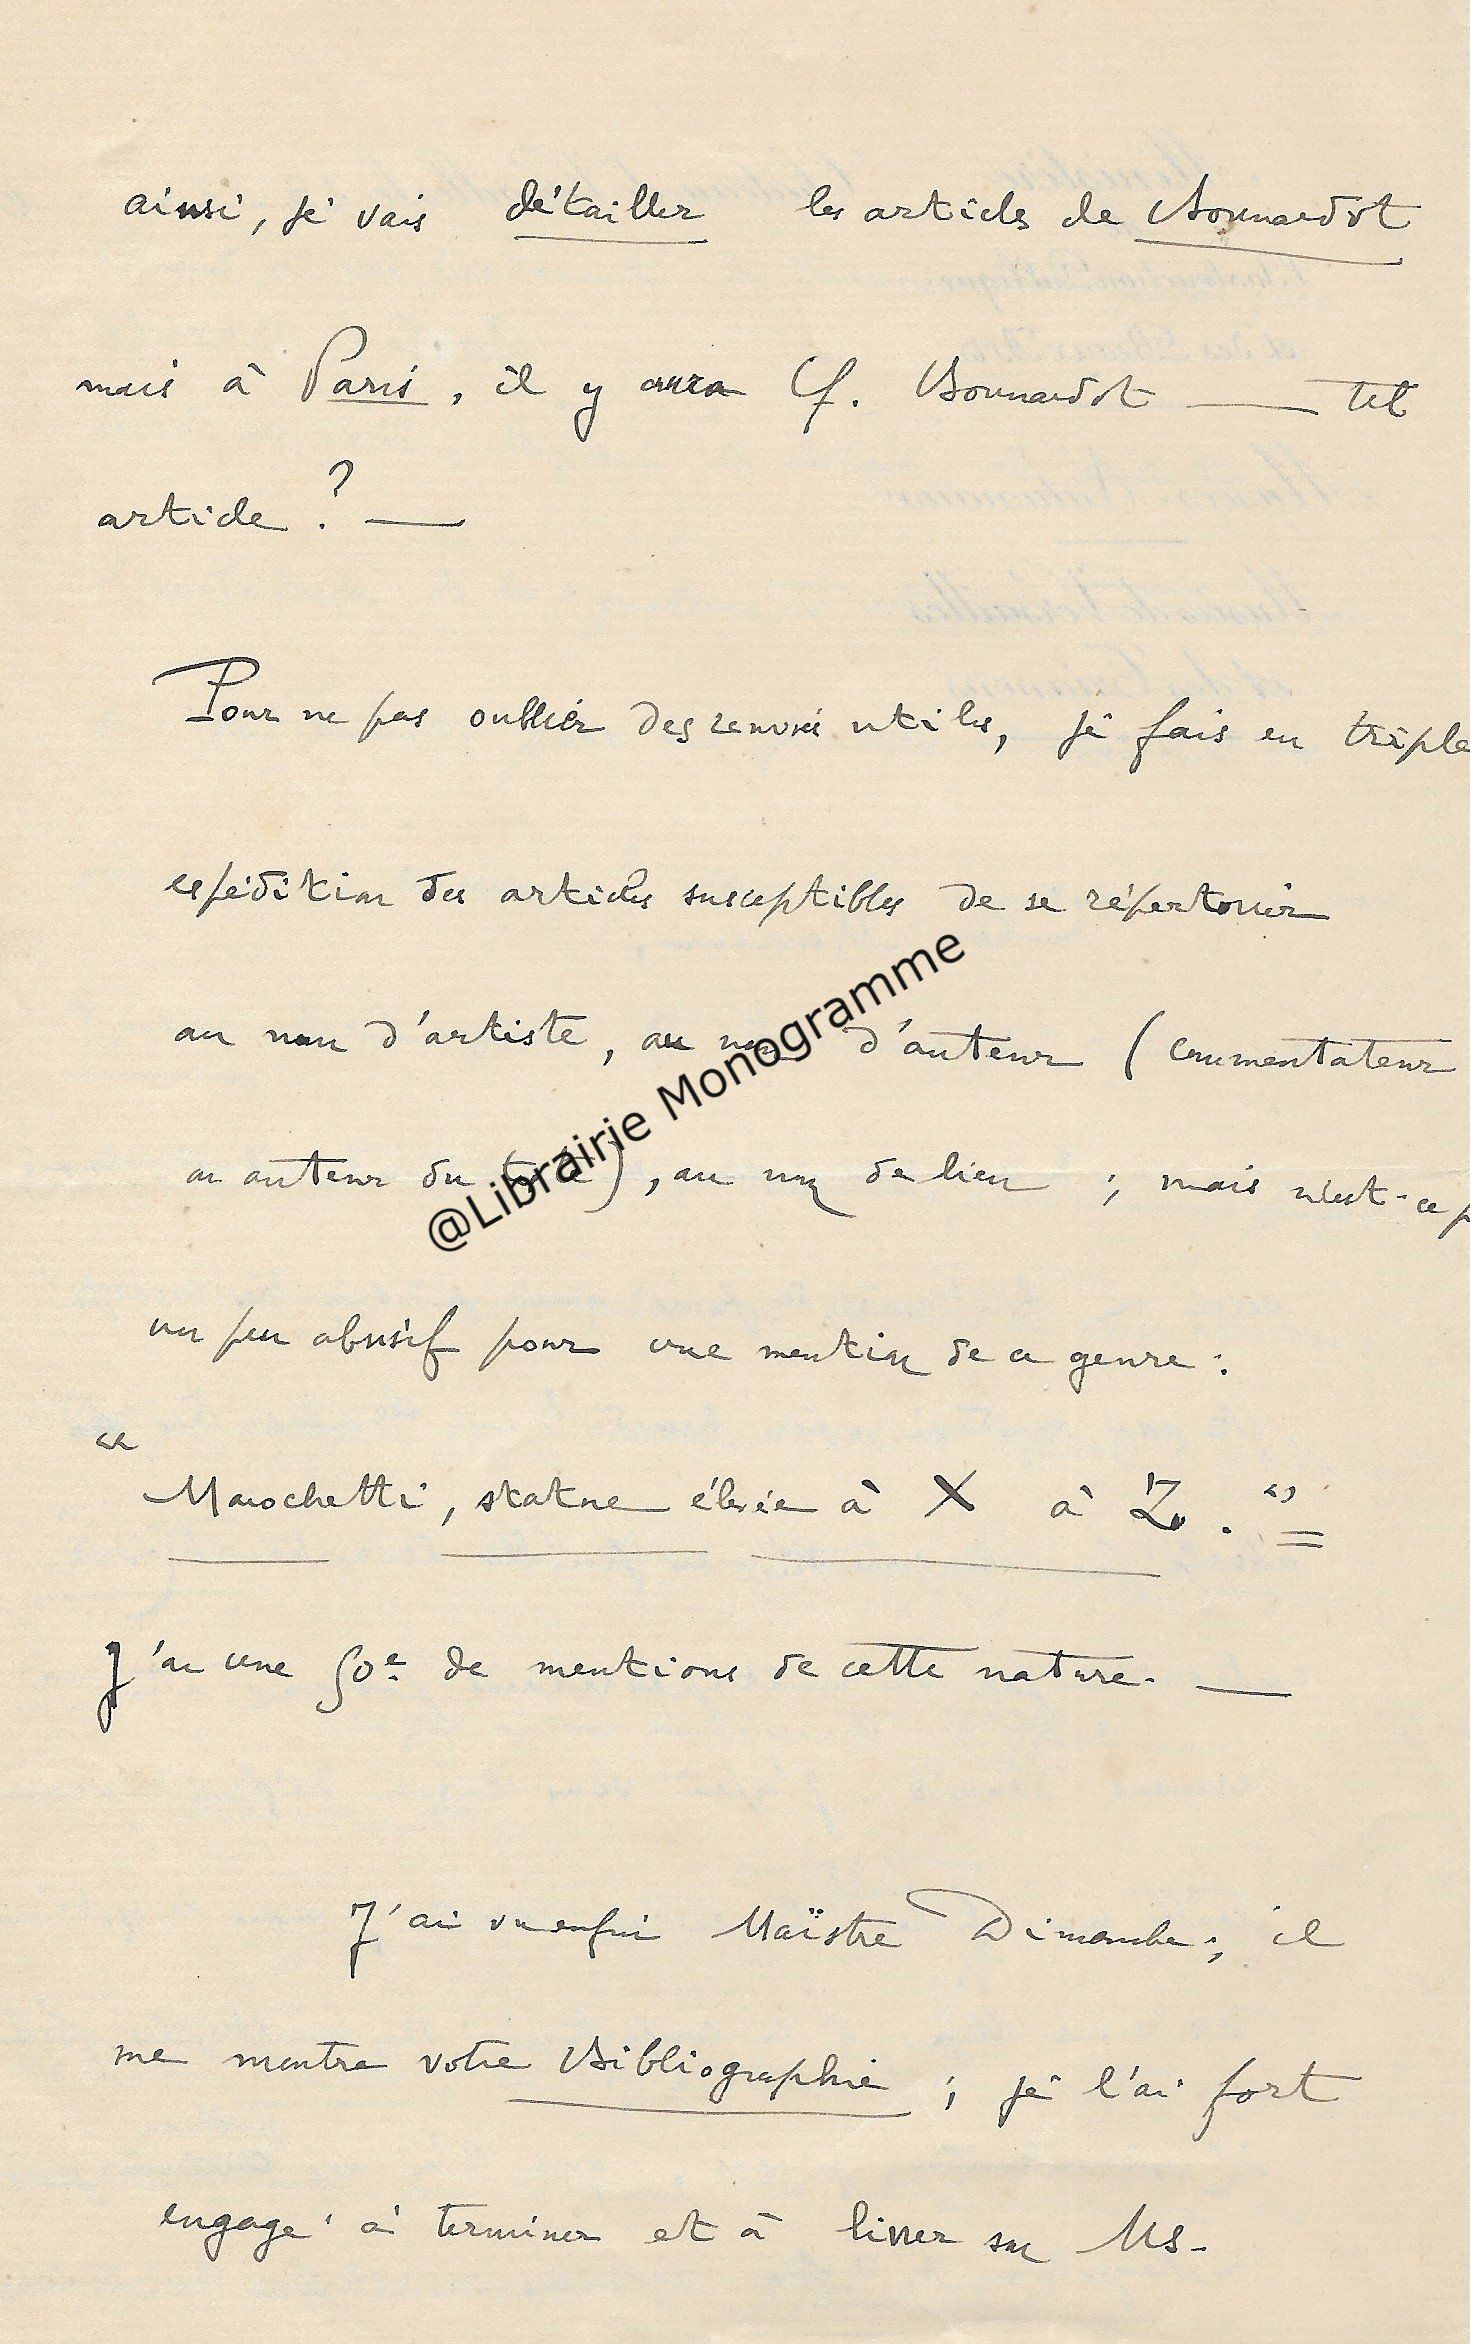 ainsi, je vais détailler les articles de Bonnardot
mais à Paris, il y aura Cf. Bonnardot — tel
article ? —
Pour ne pas oublier des renvois utiles, je fais en triple
expédition des articles susceptibles de se répertorier
au nom d'artiste, au nom d'auteur (commentateur
ou auteur du ), au nom de lieu ; mais n'est-ce p
un peu abusif pour une mention de ce genre :
“ Marochetti, statue élevée à X à Z. ” =
J'ai une 50e de mentions de cette nature. —
J'ai vu enfin Maïstre Dimanche ; il
me montra votre Bibliographie ; je l'ai fort
engagé à terminer et à livrer son Ms.
@Librairie Monogramme